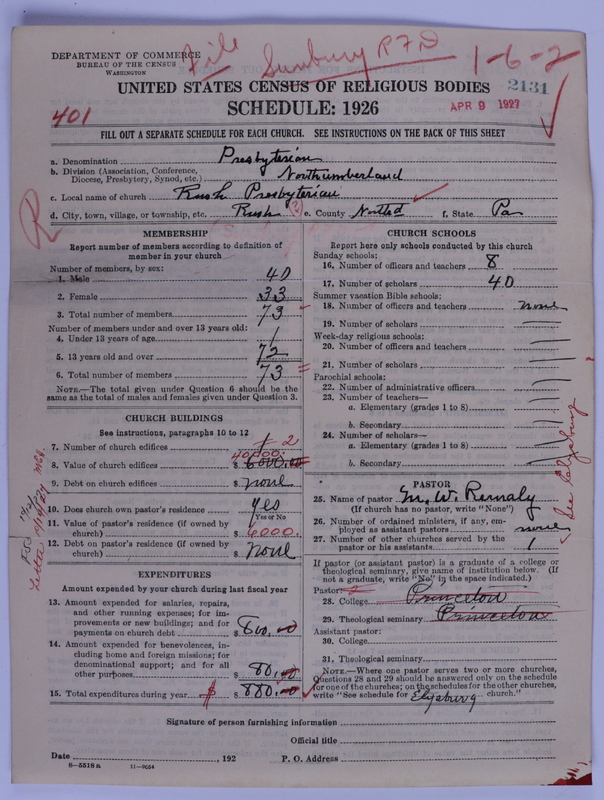 DEPARTMENT OF COMMERCE
BUREAU OF THE CENSUS
WASHINGTON
File Sunbury RFD 1-6-2
UNITED STATES CENSUS OF RELIGIOUS BODIES 2131
SCHEDULE: 1926 APR 9 1927
401
FILL OUT A SEPARATE SCHEDULE FOR EACH CHURCH. SEE INSTRUCTIONS ON THE BACK OF THIS SHEET
a. Denomination Presbyterian
b. Division (Association, Conference,
Diocese, Presbytery, Synod, etc.) Northumberland
c. Local name of church Rush Presbyterian
d. City, town, village, or township, etc. Rush e. County f. State Pa
R
MEMBERSHIP
Report number of members according to definition of
member in your church
Number of members, by sex:
1. Male 40
2. Female 33
3. Total number of members 73
Number of members under and over 13 years old:
4. Under 13 years of age 1
5. 13 years old and over 72
6. Total number of members 73
NOTE.—The total given under Question 6 should be the
same as the total of males and females given under Question 3.
CHURCH BUILDINGS
See instructions, paragraphs 10 to 12
7. Number of church edifices 1 2
40000.
8. Value of church edifices $ 6000.00
9. Debt on church edifices $ none
10. Does church own pastor's residence yes
Yes or No
11. Value of pastor's residence (if owned by
church) $ 6000.
12. Debt on pastor's residence (if owned by
church) $ none
EXPENDITURES
Amount expended by your church during last fiscal year
13. Amount expended for salaries, repairs,
and other running expenses; for im-
provements or new buildings; and for
payments on church debt $ 800.00
14. Amount expended for benevolences, in-
cluding home and foreign missions; for
denominational support; and for all
other purposes $ 80.00
15. Total expenditures during year $ $ 880.00
CHURCH SCHOOLS
Report here only schools conducted by this church
Sunday schools:
16. Number of officers and teachers 8
17. Number of scholars 40
Summer vacation Bible schools:
18. Number of officers and teachers none
19. Number of scholars
Week-day religious schools:
20. Number of officers and teachers
21. Number of scholars
Parochial schools:
22. Number of administrative officers
23. Number of teachers—
a. Elementary (grades 1 to 8)
b. Secondary
24. Number of scholars—
a. Elementary (grades 1 to 8)
b. Secondary
PASTOR
25. Name of pastor M. W. Remaly
(If church has no pastor, write "None")
26. Number of ordained ministers, if any, em-
ployed as assistant pastors none
27. Number of other churches served by the
pastor or his assistants 1
See Elysburg
If pastor (or assistant pastor) is a graduate of a college or
theological seminary, give name of institution below. (If
not a graduate, write "No" in the space indicated.)
Pastor:
28. College Princeton
29. Theological seminary Princeton
Assistant pastor:
30. College
31. Theological seminary
NOTE.—Where one pastor serves two or more churches,
Questions 28 and 29 should be answered only on the schedule
for one of the churches; on the schedules for the other churches,
write "See schedule for Elysburg church."
Signature of person furnishing information
Official title
Date , 192 P. O. Address
8—5518 a 11—9054